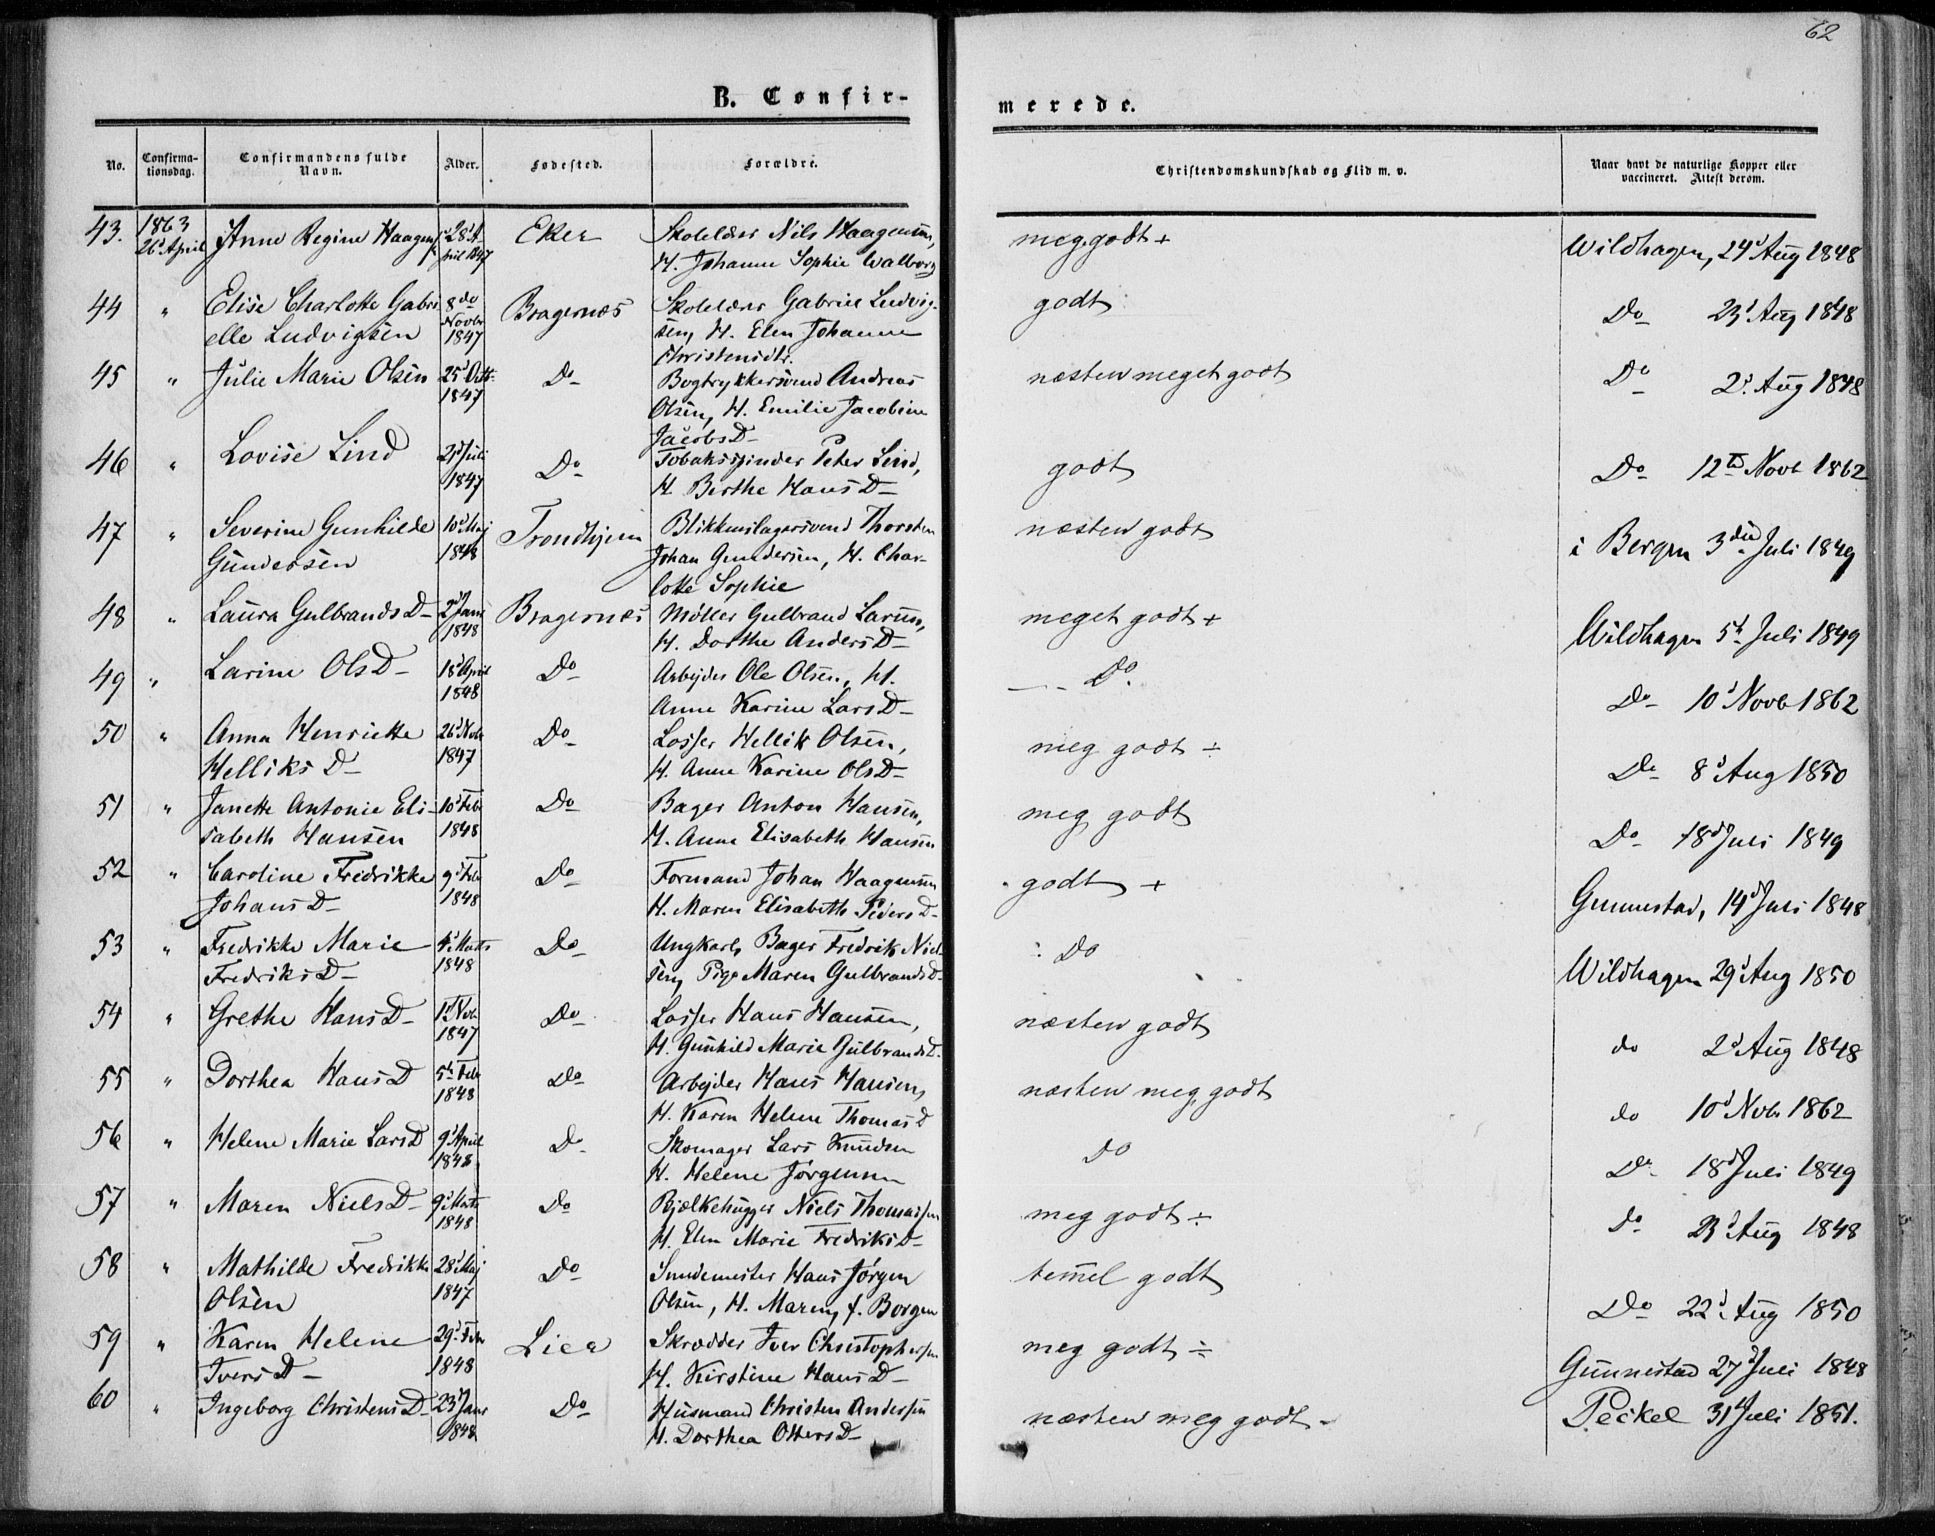 62
B. Confir-
merede.
No.
Confirma-
tionsdag.
Confirmandens fulde
Navn.
Alder.
Fødested.
Forældre.
Christendomskundskab og Flid m. v.
Naar havt de naturlige Kopper eller
vaccineret. Attest derom.
43. 1863 Anne Regine Haagens. 28d A- Eker Skolelærer Nils Haagensen, meg. godt + Wildhagen, 24d Aug 1848
26d April pril 1847 H. Johanne Sophie Walborg
44 " Elise Charlotte Gabri 8de Bragernæs Skolelærer Gabriel Ludvig- godt Do 23d Aug 1848
elle Ludvigsen Novbr 1847 sen, H. Elen Johanne
Christensdtr.
45 " Julie Marie Olsen 25d Octb. Do Bogtrykkersvend Andreas næsten meget godt Do 2d Aug 1848
1847 Olsen, H. Emilie Jacobine
JacobsD
46 " Lovise Lind Juli Do Tobaksspinder Peter Lind, godt Do 12te Novb 1862
1847 H. Birthe HansD
47 " Severine Gunhilde 10d Maj Trondhjem Blikkenslagersvend Thorsten næsten godt i Bergen 3die Juli 1849
Gundersen 1848 Johan Gundersen, H. Char-
lotte Sophie
48 " Laura GulbrandsD 2d Janr Bragernæs Møller Gulbrand Larsen, meget godt + Wildhagen 5te Juli 1849
1848 H. Dorthe AndersD
49 " Larine OlsD 18d April Do Arbejder Ole Olsen, H. Do Do 10d Novb 1862
1848 Anne Karine LarsD
50 " Anna Henriette 26d Nvb Do Losser Hellik Olsen, meg godt ÷ Do 8d Aug 1850
HelliksD 1847 H. Anne Karine OlsD
51 " Janette Antonie Eli- 10d Febr Do Bager Anton Hansen, meg godt Do 18d Juli 1849
sabeth Hansen 1848 H. Anne Elisabeth Hansen
52 " Caroline Fredrikke 9d Febr Do Formand Johan Haagensen godt + Gunnestad, 14d Juli 1848
JohansD 1848 H. Maren Elisabeth PedersD
53 " Fredrikke Marie 4d Marts Do Ungkarl, Bager Fredrik Niel- Do Wildhagen 29d Aug 1850
FredriksD 1848 sen, Pige Maren GulbrandsD
54 " Grethe HansD 1t Nvb Do Losser Hans Hansen, næsten godt do 2d Aug 1848
1847 H. Gunhild Marie GulbrandsD
55 " Dorthea HansD 5te Febr Do Arbejder Hans Hansen, næsten meg godt do 10d Nvb 1862
1848 H. Karen Helene ThomasD
56 " Helene Marie LarsD 9d April Do Skomager Lars Knudsen Do Do 18d Juli 1849
1848 H. Helene Jørgensen
57 " Maren NielsD 9d Marts Do Bjælkehugger Niels Thomassen meg godt ÷ Do 23d Aug 1848
1848 H. Elen Marie FredriksD
58 " Mathilde Fredrikke 28d Maj Do Smedemester Hans Jørgen temel godt Do 22d Aug 1850
Olsen 1847 Olsen, H. Maren, f. Borgen
59 " Karen Helene 29d Febr Lier Skrædder Iver Christophersen meg godt ÷ Gunnestad 27d Juli 1848
IversD 1848 H. Kirstine HansD
60 " Ingeborg ChristensD 23d Janr Do Husmand Christen Andersen næsten meg godt Peckel 31d Juli 1851.
1848 H. Dorthea OttersD